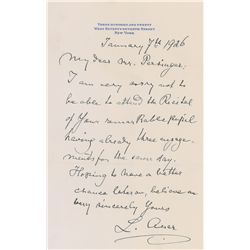 THREE HUNDRED AND TWENTY
WEST SEVENTY-SEVENTH STREET
NEW YORK
January 7th 1926
My dear Mr. Persinger,
I am very sorry not to
be able to attend the Recital
of Your remarkable pupil
having already three engage-
ments for the same day.
Hoping to have a better
chance later on, believe me
very sincerely Yours
L. Auer